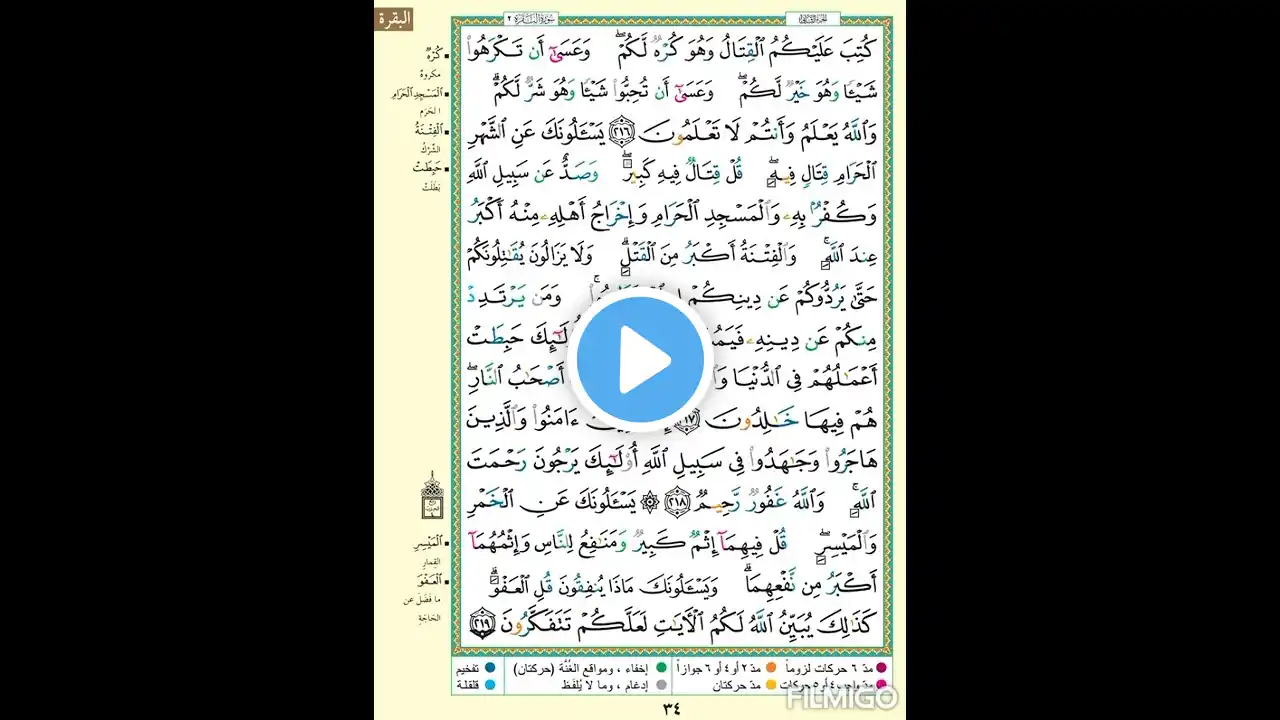 البقرة
سُورَةُ البَقَرَة ٢
كُتِبَ عَلَيْكُمُ ٱلْقِتَالُ وَهُوَ كُرْهٌ لَّكُمْ ۖ وَعَسَىٰٓ أَن تَكْرَهُوا۟
شَيْـًٔا وَهُوَ خَيْرٌ لَّكُمْ ۖ وَعَسَىٰٓ أَن تُحِبُّوا۟ شَيْـًٔا وَهُوَ شَرٌّ لَّكُمْ ۗ
وَٱللَّهُ يَعْلَمُ وَأَنتُمْ لَا تَعْلَمُونَ ٢١٦ يَسْـَٔلُونَكَ عَنِ ٱلشَّهْرِ
ٱلْحَرَامِ قِتَالٍ فِيهِ ۖ قُلْ قِتَالٌ فِيهِ كَبِيرٌ ۖ وَصَدٌّ عَن سَبِيلِ ٱللَّهِ
وَكُفْرٌۢ بِهِۦ وَٱلْمَسْجِدِ ٱلْحَرَامِ وَإِخْرَاجُ أَهْلِهِۦ مِنْهُ أَكْبَرُ
عِندَ ٱللَّهِ ۚ وَٱلْفِتْنَةُ أَكْبَرُ مِنَ ٱلْقَتْلِ ۗ وَلَا يَزَالُونَ يُقَـٰتِلُونَكُمْ
حَتَّىٰ يَرُدُّوكُمْ عَن دِينِكُمْ وَمَن يَرْتَدِدْ
مِنكُمْ عَن دِينِهِۦ حَبِطَتْ
أَعْمَـٰلُهُمْ فِى ٱلدُّنْيَا أَصْحَـٰبُ ٱلنَّارِ ۖ
هُمْ فِيهَا خَـٰلِدُونَ ءَامَنُوا۟ وَٱلَّذِينَ
هَاجَرُوا۟ وَجَـٰهَدُوا۟ فِى سَبِيلِ ٱللَّهِ أُو۟لَـٰٓئِكَ يَرْجُونَ رَحْمَتَ
ٱللَّهِ ۚ وَٱللَّهُ غَفُورٌ رَّحِيمٌ ٢١٨ ۞ يَسْـَٔلُونَكَ عَنِ ٱلْخَمْرِ
وَٱلْمَيْسِرِ ۖ قُلْ فِيهِمَآ إِثْمٌ كَبِيرٌ وَمَنَـٰفِعُ لِلنَّاسِ وَإِثْمُهُمَآ
أَكْبَرُ مِن نَّفْعِهِمَا ۗ وَيَسْـَٔلُونَكَ مَاذَا يُنفِقُونَ قُلِ ٱلْعَفْوَ ۗ
كَذَٰلِكَ يُبَيِّنُ ٱللَّهُ لَكُمُ ٱلْـَٔايَـٰتِ لَعَلَّكُمْ تَتَفَكَّرُونَ ٢١٩
كُرْهٌ
مكروهٌ
ٱلْمَسْجِدِ ٱلْحَرَامِ
الحَرَمِ
ٱلْفِتْنَةُ
الشِّرْكُ
حَبِطَتْ
بَطَلَتْ
ٱلْمَيْسِرِ
القِمارِ
ٱلْعَفْوَ
ما فَضَلَ عن
الحَاجَةِ
مدّ ٦ حركات لزوماً مدّ ٢ أو ٤ أو ٦ جوازاً إخفاء ، ومواقع الغُنَّة (حركتان) تفخيم
مدّ واجب ٤ أو ٥ حركات مدّ حركتان إدغام ، وما لا يُلفَظ قلقلة
٣٤
FILMIGO